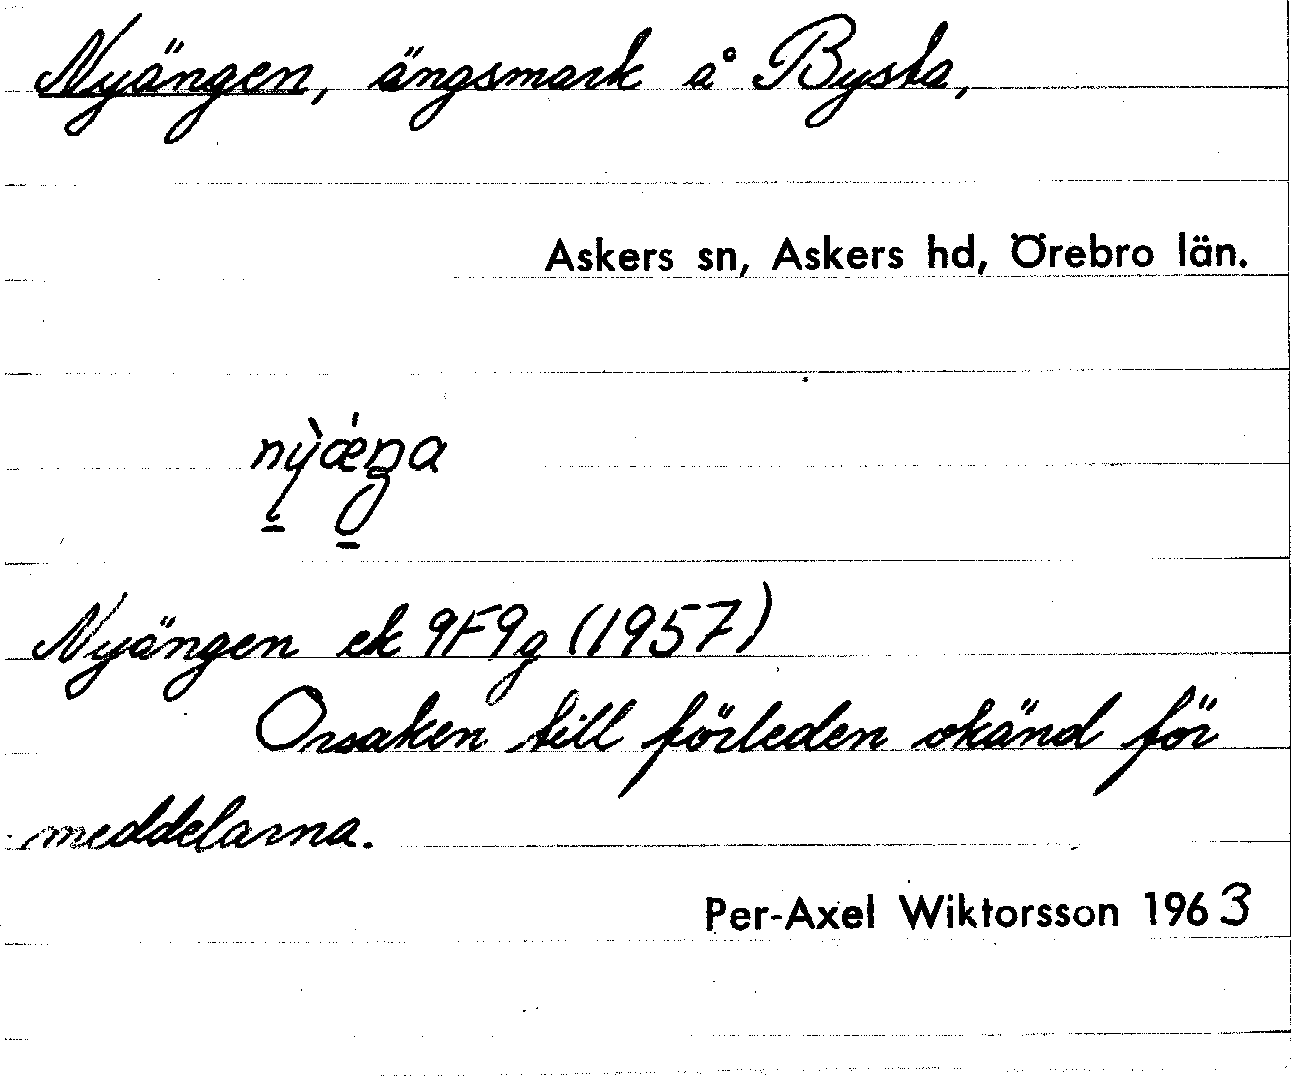 Nyängen, ängsmark å Bysta,
Askers sn, Askers hd, Örebro län.
nỳǽŋa
Nyängen ek 9F9g (1957)
Orsaken till förleden okänd för
meddelarna.
Per-Axel Wiktorsson 1963